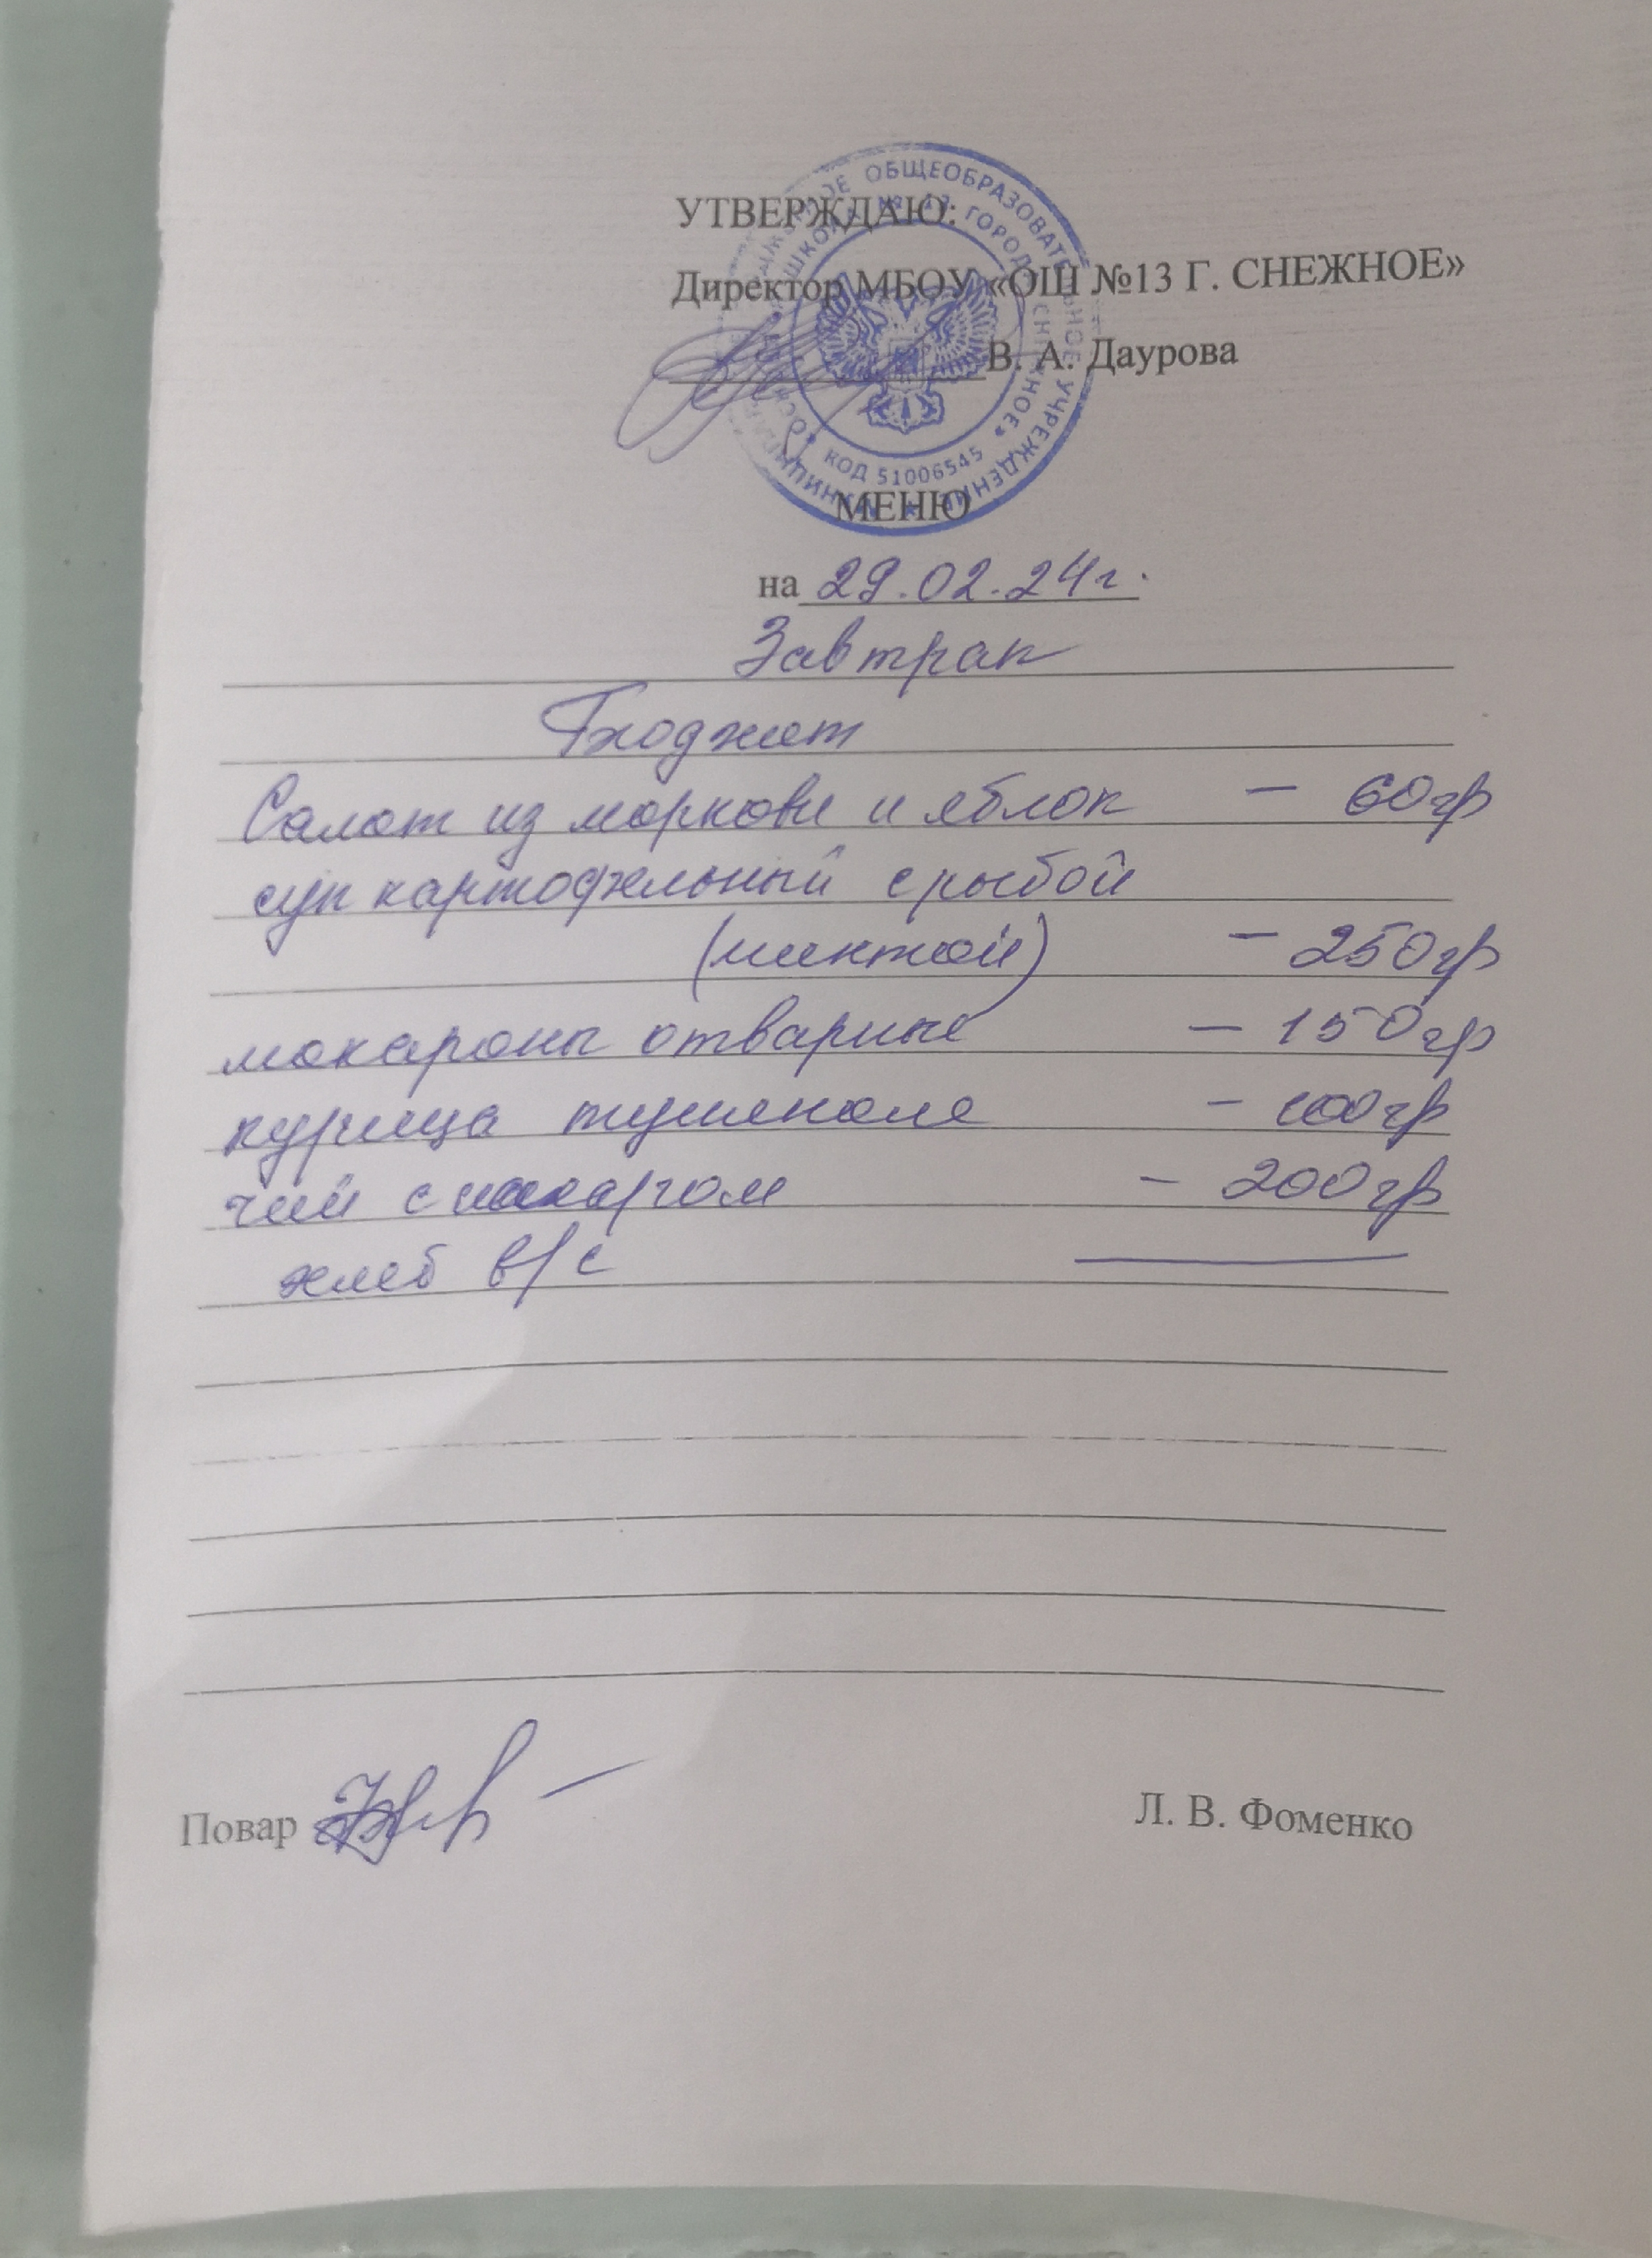 УТВЕРЖДАЮ:
Директор МБОУ «ОШ №13 Г. СНЕЖНОЕ»
В. А. Даурова
ОБЩЕОБРАЗОВАТЕЛЬНОЕ УЧРЕЖДЕНИЕ
КОД 51006545
МЕНЮ
на 29.02.24г.
Завтрак
Бюджет
Салат из моркови и яблок – 60гр
суп картофельный с рыбой
(минтай) – 250гр
макароны отварные – 150гр
курица тушеная – 100гр
чай с сахаром – 200гр
хлеб в/с
Повар
Л. В. Фоменко